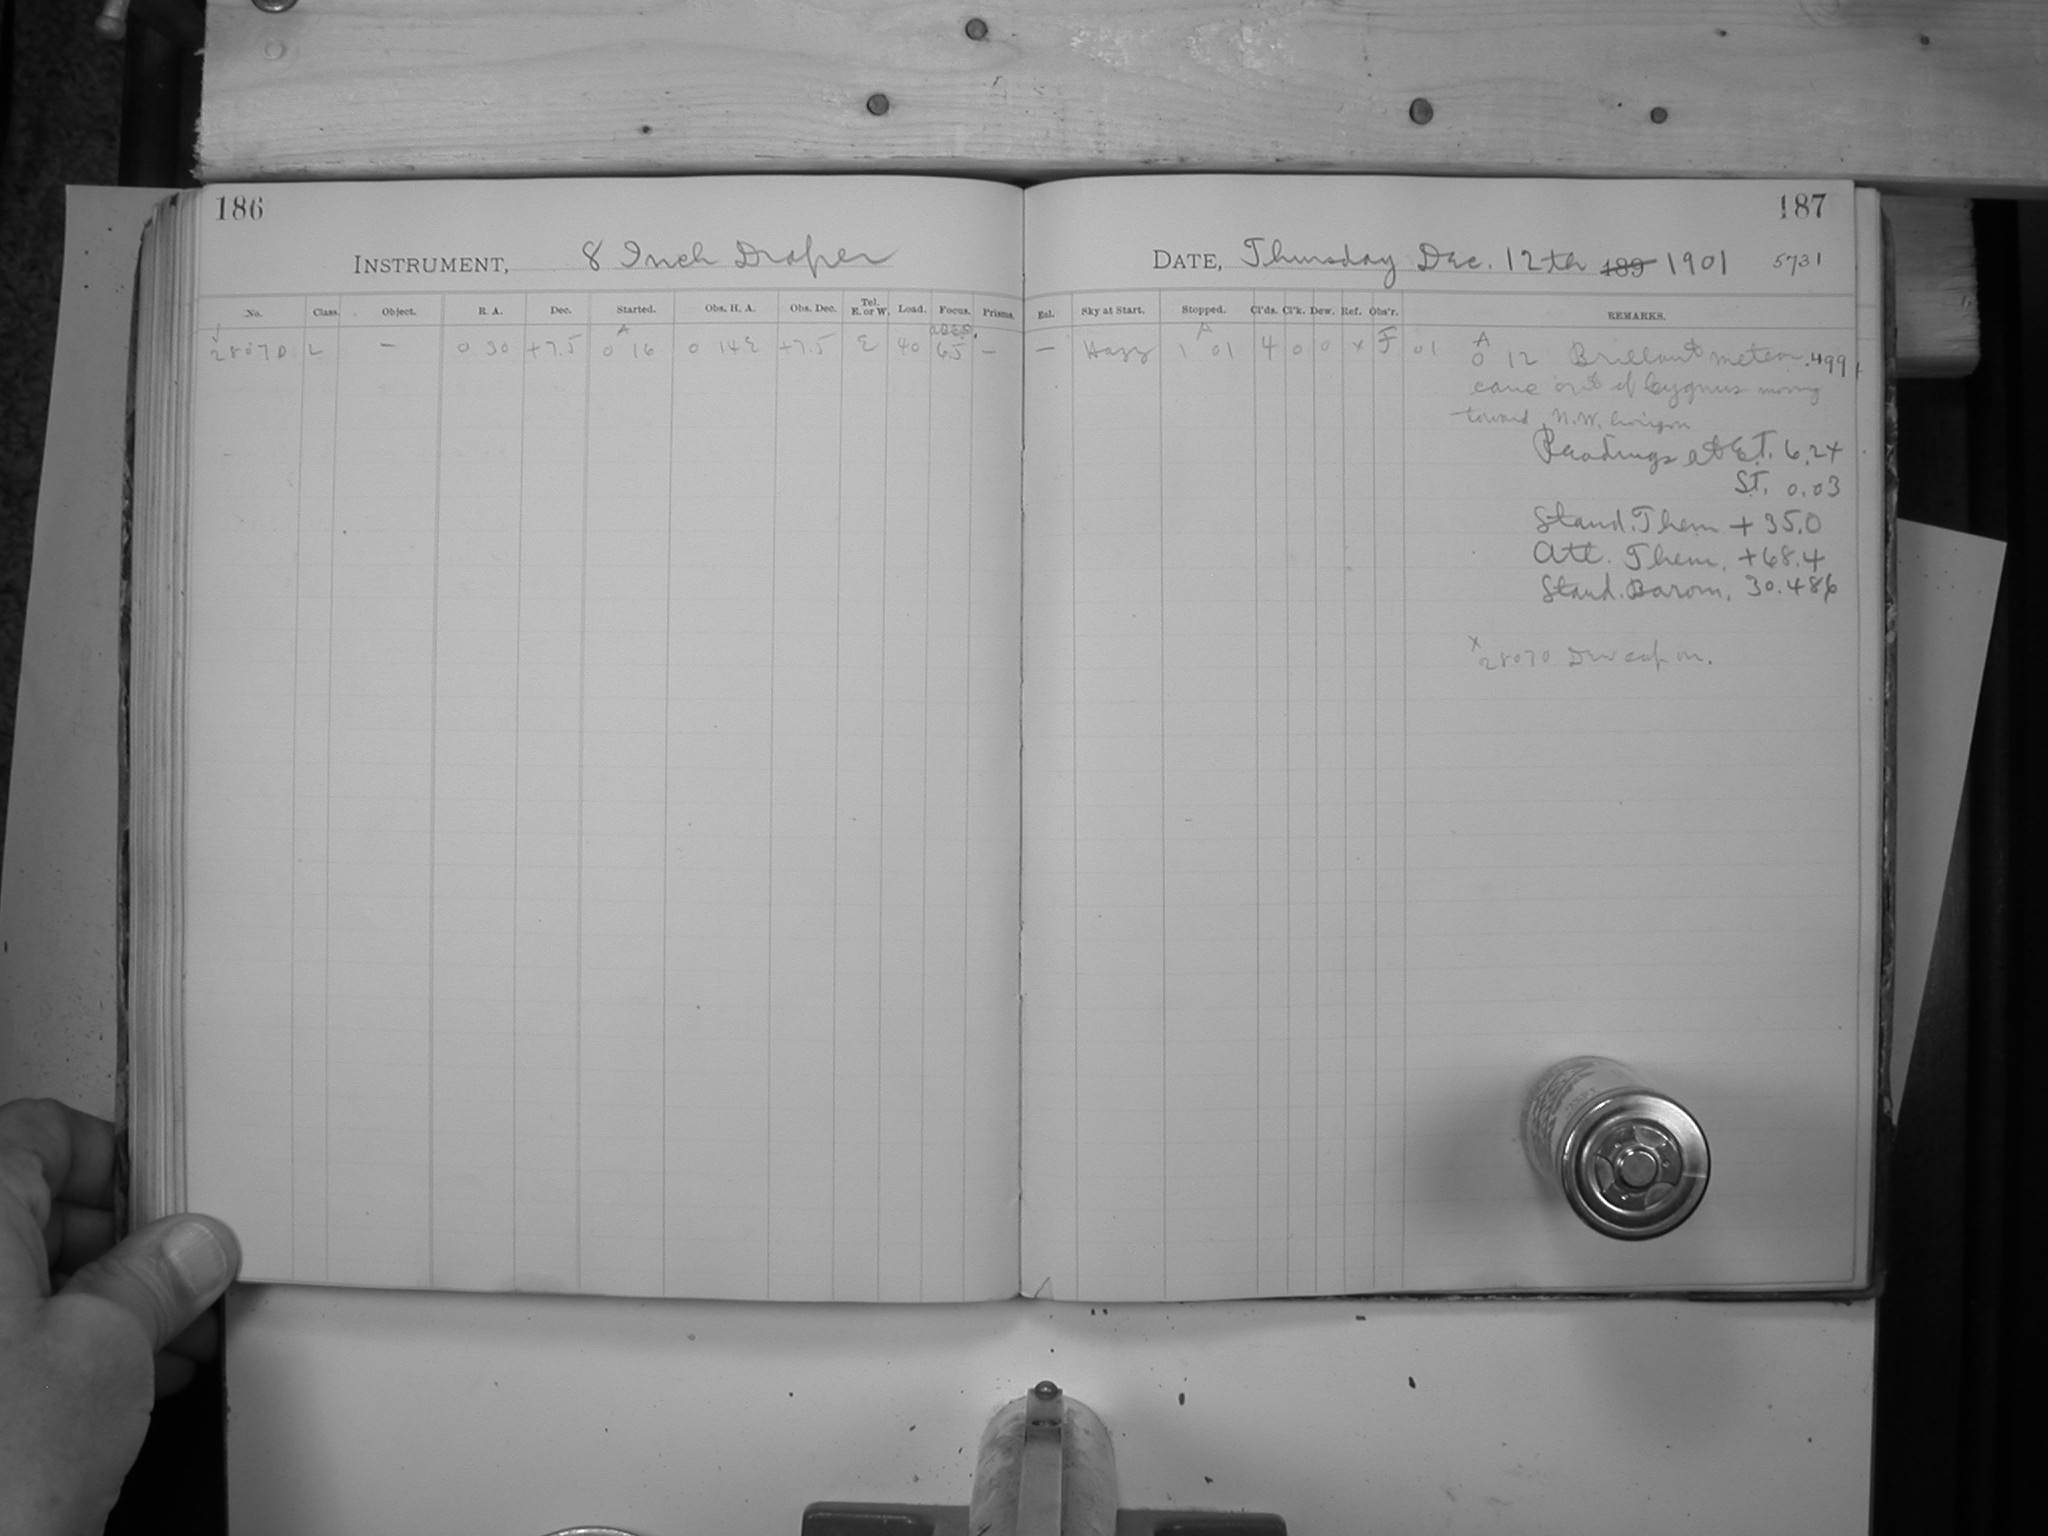 186
187
INSTRUMENT, 8 Inch Draper
DATE, Thursday Dec. 12th 189 1901 5731
No. Class. Object. R. A. Dec. Started. Obs. H. A. Obs. Dec. Tel. E. or W. Load. Focus. Prisms. Eal. Sky at Start. Stopped. Cl'ds. Cl'k. Dew. Ref. Obs'r. REMARKS.
28070 L — 0 30 +7.5 A 0 16 0 14 E +7.5 E 40 6.5 — — Hazy A 1 01 4 0 0 x F 01 A 0 12 Brillant meteor .4991
came out of Cygnus moving
toward N.W. horizon
Readings at E.T. 6.24
S.T. 0.03
Stand. Therm + 35.0
Att. Therm. +68.4
Stand. Barom. 30.486
x 28070 Dew cap on.